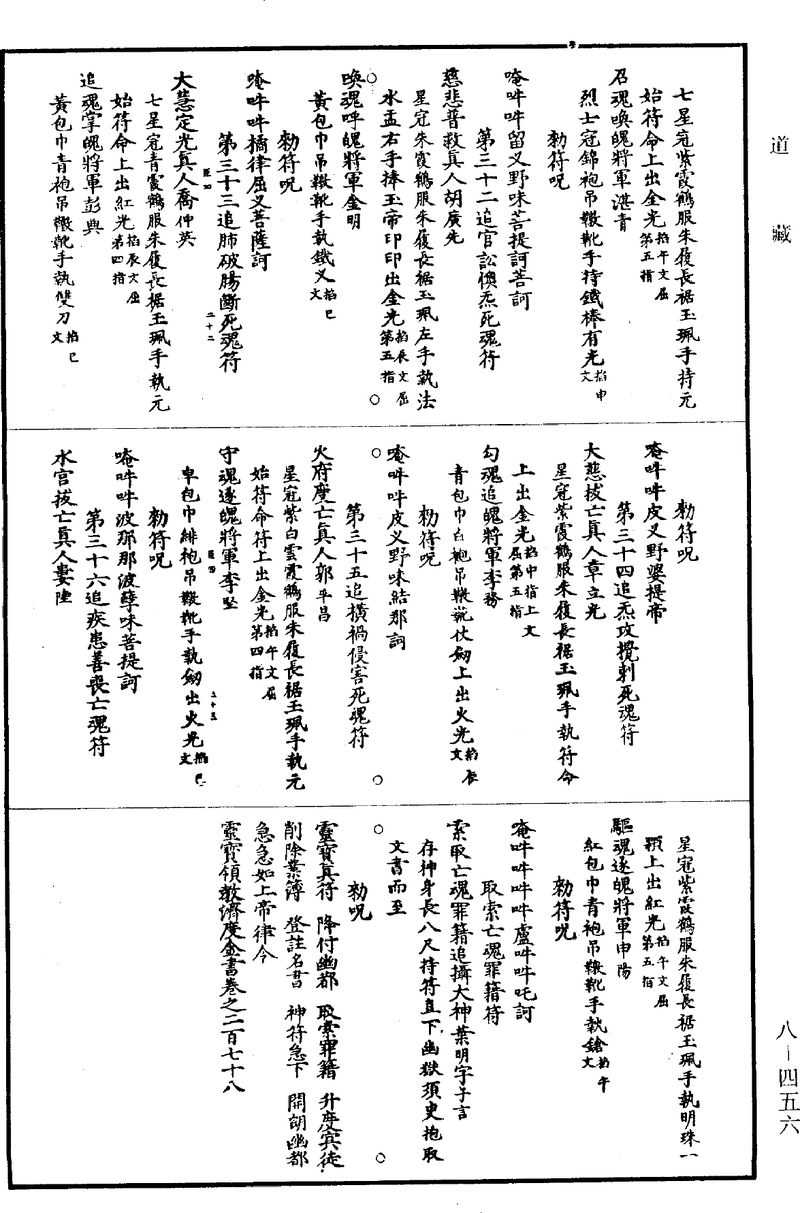 道藏
七星冠紫霞鶴服朱履長裾玉珮手持元
始符命上出金光掐辰文屈第五指
召魂喚魄將軍湛青
烈士冠錦袍吊𩎟靴手持鐵棒有光掐申文
勑符呪
唵吽吽留义野味菩提訶菩訶
第三十二追官訟懊炁死魂符
慈悲普救眞人胡廣先
星冠朱霞鶴服朱履長裾玉珮左手執法
水盂右手捧玉帝印印出金光掐辰文屈第五指
喚魂呼魄將軍金明
黃包巾吊𩎟靴手執鐵义掐巳文
勑符呪
唵吽吽橋律屈义菩薩訶
第三十三追肺破腸斷死魂符
大慧定光眞人喬仲英
七星冠青霞鶴服朱履長裾玉珮手執元
始符命上出紅光掐辰文屈第四指
追魂掌魄將軍彭典
黃包巾青袍吊𩎟靴手執雙刀掐巳文
勑符呪
唵吽吽皮义野婆提帝
第三十四追炁攻攪刺死魂符
大慈拔亡眞人章立光
星冠紫霞鶴服朱履長裾玉珮手執符命
上出金光掐中指上文屈第五指
勾魂追魄將軍李務
青包巾白袍吊𩎟靴仗劒上出火光掐辰文
勑符呪
唵吽吽皮义野味結那訶
第三十五追橫禍侵害死魂符
火府度亡眞人郭平昌
星冠紫白雲霞鶴服朱履長裾玉珮手執元
始符命符上出金光掐午文屈第四指
守魂逐魄將軍李堅
皁包巾緋袍吊𩎟靴手執劒出火光掐巳文
勑符呪
唵吽吽波那那波孽味菩提訶
第三十六追疾患善喪亡魂符
水官拔亡眞人婁陸
星冠紫霞鶴服朱履長裾玉珮手執明珠一
顆上出紅光掐午文屈第五指
驅魂逐魄將軍申陽
紅包巾青袍吊𩎟靴手執鎗掐午文
勑符呪
唵吽吽吽吽盧吽吽吒訶
取索亡魂罪籍符
索取亡魂罪籍追攝大神葉明字子言
存神身長八尺持符直下幽獄須臾抱取
文書而至
勑呪
靈寶眞符 降付幽都 取索罪籍 升度㝠徒
削除業簿 登註名書 神符急下 開朗幽都
急急如上帝律令
靈寶領教濟度金書卷之二百七十八
八—四五六